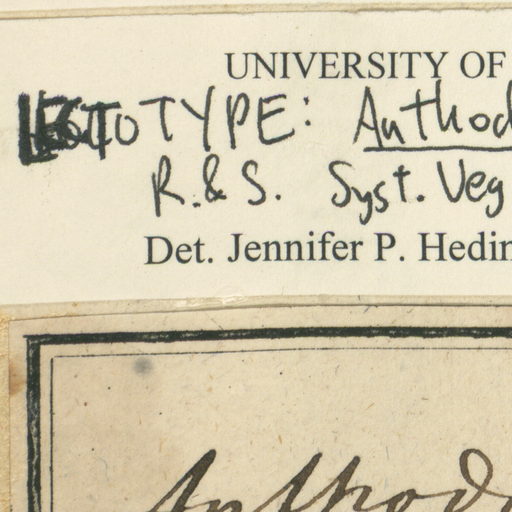 UNIVERSITY OF
LECTOTYPE: Anthod
R. & S. Syst. Veg
Det. Jennifer P. Hedin
Anthodo